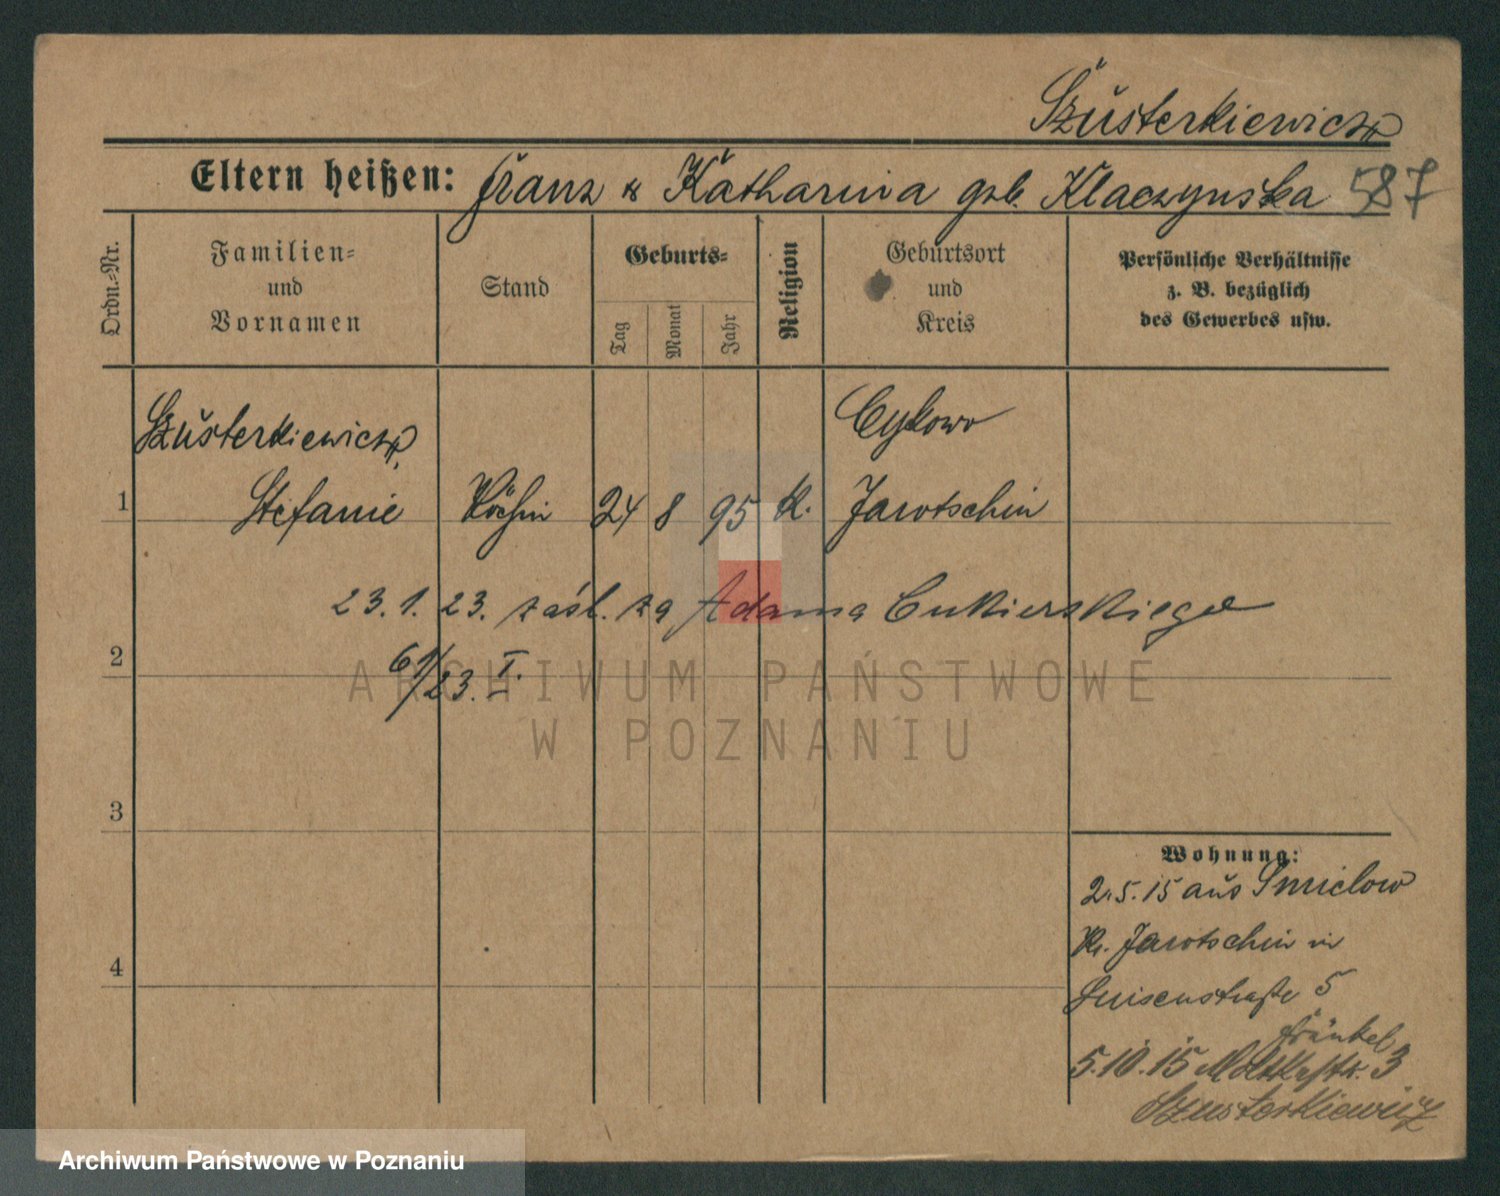 Szusterkiewicz
Eltern heißen: Franz & Katharina geb. Klaczynska 587
Ordn.-Nr.
Familien-
und
Vornamen
Stand
Geburts-
Tag
Monat
Jahr
Religion
Geburtsort
und
Kreis
Persönliche Verhältnisse
z. B. bezüglich
des Gewerbes usw.
Szusterkiewicz,
Cykowo
1 Stefanie Köchin 24 8 95 K. Jarotschin
23.1.23. zaśl. za Adama Cukierskiego
2
61/23. I.
ARCHIWUM PAŃSTWOWE
W POZNANIU
3
Wohnung:
2.5.15 aus Smielow
Kr. Jarotschin in
4
Luisenstraße 5
Fränkel
5.10.15 Moltkestr. 3
Szusterkiewicz
Archiwum Państwowe w Poznaniu